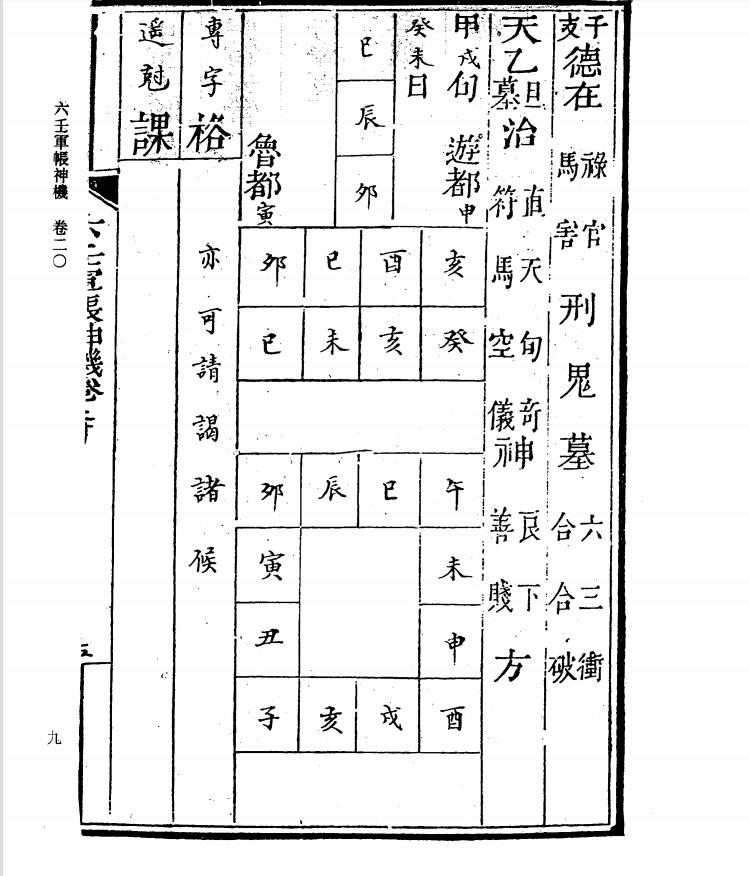 干支德在祿馬官害刑鬼墓六合三合衝破
天乙旦墓治直符天馬旬空奇儀神良善下賤方
甲戌旬 遊都申
癸未日
巳
辰
卯
魯都寅
亥 酉 巳 卯
癸 亥 未 巳
午 巳 辰 卯
未 寅
申 丑
酉 戌 亥 子
專字裕
亦可請謁諸候
遥尅課
六壬軍帳神機 卷二〇
九